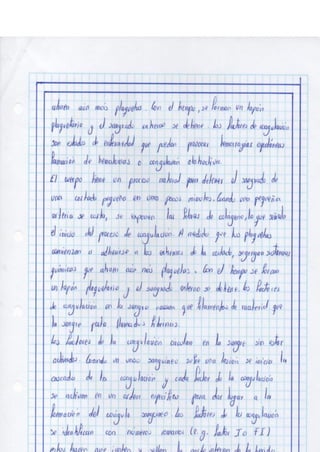 atraen aún más plaquetas. Con el tiempo, se forman un tapón
plaquetario y el sangrado externo se detiene. Los factores de coagulación
son estados de enfermedad que pueden provocar hemorragias
formación de hematomas o coagulación
El cuerpo tiene un proceso natural para detener el sangrado de
una cortada pequeña en unos pocos minutos. Cuando una pequeña
arteria se corta, se exponen las fibras de colágeno, lo que
el inicio del proceso de coagulación. A medida que las plaquetas
comienzan a adherirse a los extremos de la cortada, segregan sustancias
químicas que atraen aun mas plaquetas. Con el tiempo se forman
un tapón plaquetario y el sangrado externo se detiene. Los factores
de coagulación en la sangre causan que filamentos de material que
la sangre porta llamados fibrinas.
Los factores de la coagulación circulan en la sangre sin estar
activados. Cuando un vaso sanguineo sufre una lesion se inicia la
cascada de los coagulacion y cada factor de la coagulación
se activan en un orden especifico para dar lugar a la
formación del coágulo sanguineo los factores de la coagulación
se identifican con números romanos (e.g. factor I o FI)